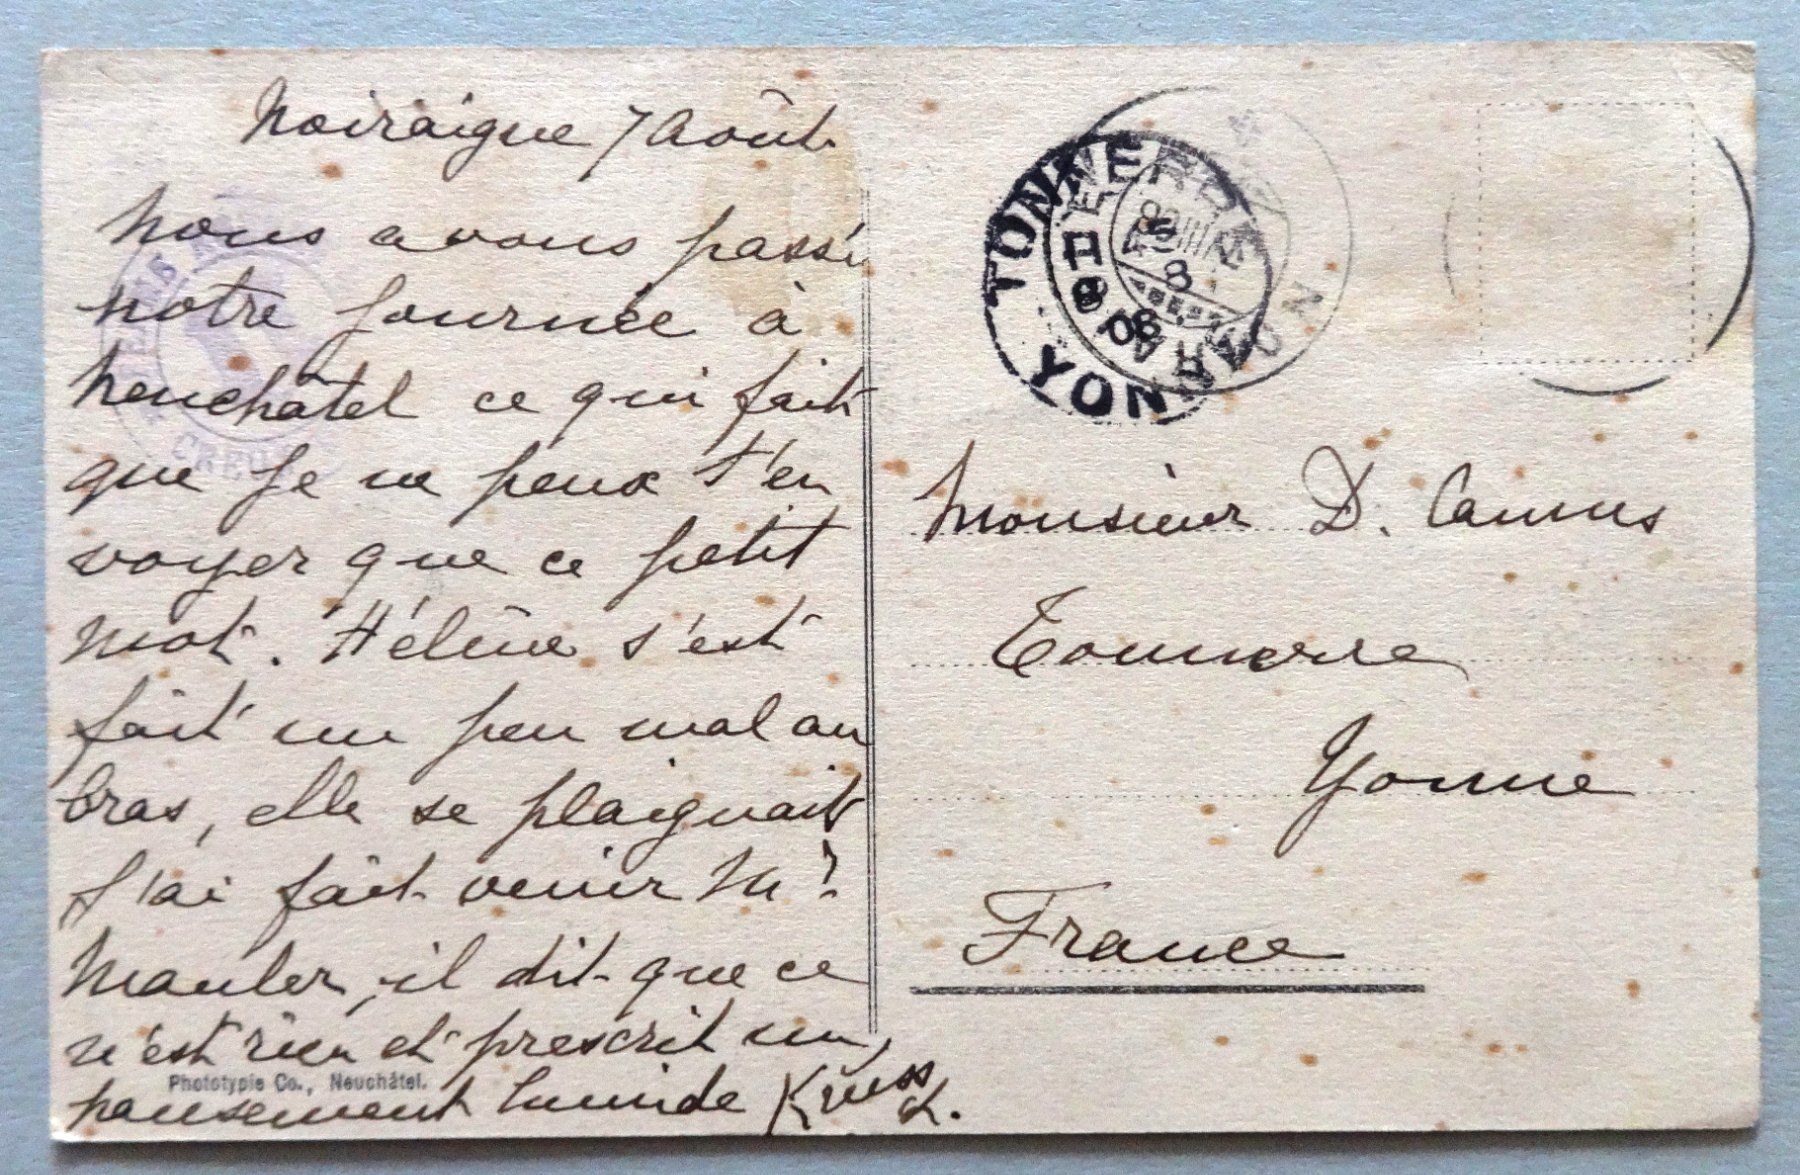 Noiraigue 7 Août
Nous avons passé
notre journée à
Neuchâtel ce qui fait
que je ne peux t'en
voyer que ce petit
mot. Hélène s'est
fait un peu mal au
bras, elle se plaignait
j'ai fait venir Mr
Mauler, il dit que ce
n'est rien et prescrit un
pansement humide Kruss
L.
Phototypie Co., Neuchâtel.
TONNERRE
YONNE
08
CREUSE
Monsieur D. Camus
Tonnerre
Yonne
France